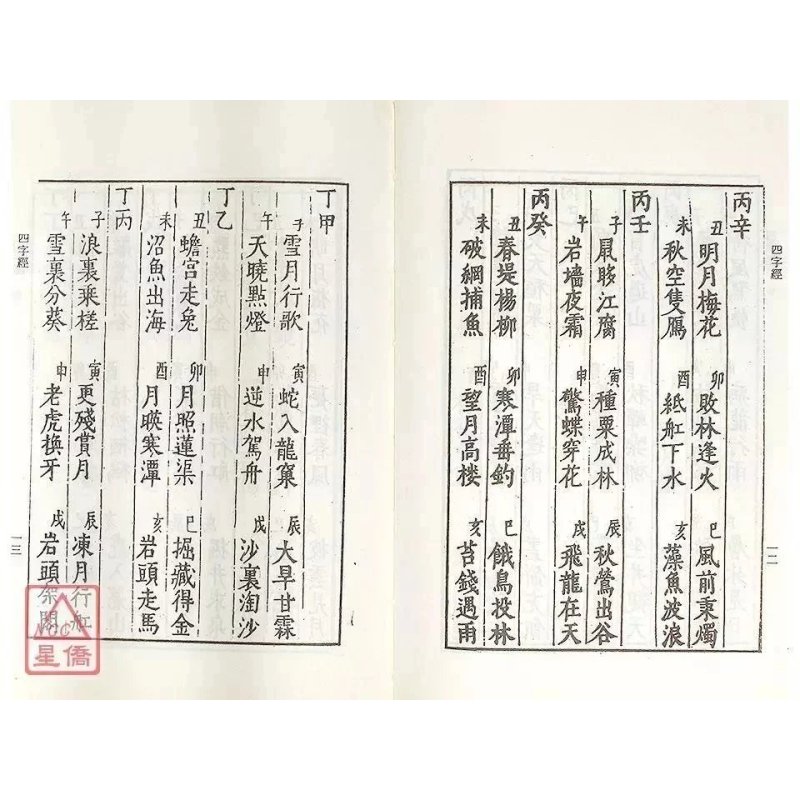 四字經
一二
丙辛
丑 明月梅花 卯 敗林逢火 巳 風前秉燭
未 秋空隻鴈 酉 紙舡下水 亥 藻魚波浪
丙壬
子 江腐 寅 種粟成林 辰 秋鶯出谷
午 岩墻夜霜 申 驚蝶穿花 戌 飛龍在天
丙癸
丑 春堤楊柳 卯 寒潭垂釣 巳 餓鳥投林
未 破網捕魚 酉 望月高楼 亥 苔錢遇雨
丁甲
子 雪月行歌 寅 蛇入龍窠 辰 大旱甘霖
午 天曉點燈 申 逆水駕舟 戌 沙裏淘沙
丁乙
丑 蟾宮走兔 卯 月照蓮渠 巳 掘藏得金
未 沼魚出海 酉 月暎寒潭 亥 岩頭走馬
丁丙
子 浪裏乘槎 寅 更殘賞月 辰 凍月行舡
午 雪裏分葵 申 老虎換牙 戌 岩頭架閣
四字經
一三
NCC
星僑